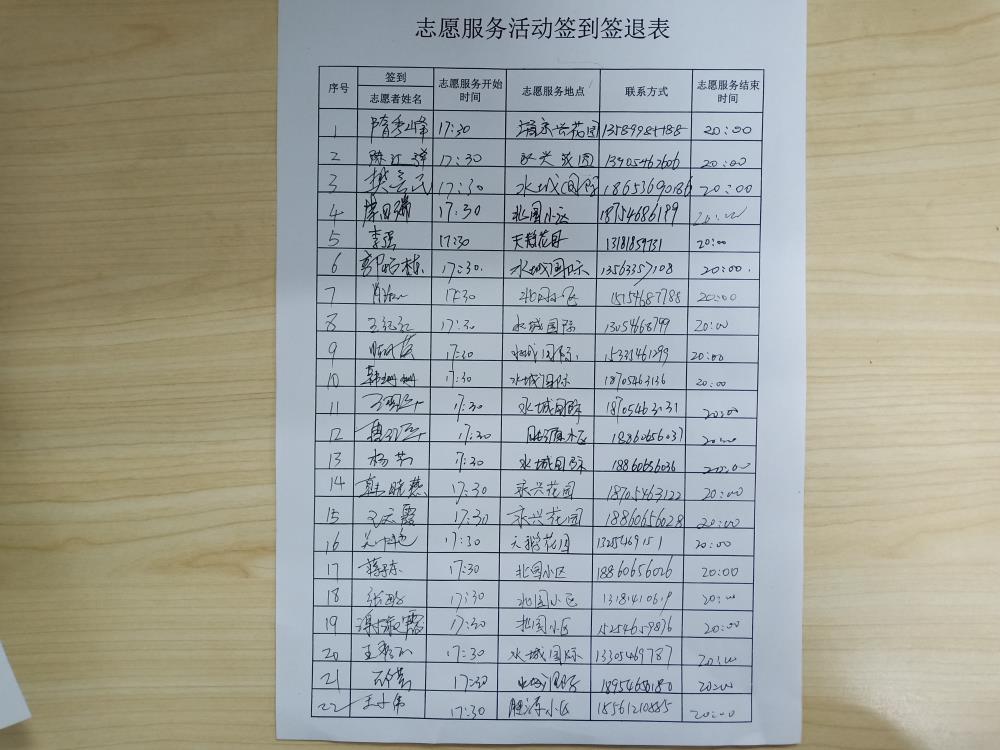 志愿服务活动签到签退表
序号 签到 志愿者姓名 志愿服务开始时间 志愿服务地点 联系方式 志愿服务结束时间
1 隋秀峰 17:30 永兴花园 20:00
2 17:30 永兴花园 13905462606 20:00
3 17:30 水城国际 18653690186 20:00
4 17:30 北园小区 18754686199 20:00
5 李强 17:30 天鹅花园 13181859731 20:00
6 17:30. 水城国际 13563357108 20:00.
7 17:30 北园小区 15154687788 20:00
8 17:30 水城国际 13054668799 20:00
9 17:30 水城国际 15335461299 20:00
10 韩姗姗 17:30 水城国际 18705463136 20:00
11 17:30 水城国际 18705463131 20:00
12 17:30 小区 18860656037 20:00
13 杨芳 17:30 水城国际 18860656036 20:00
14 韩晓燕 17:30 永兴花园 18705463122 20:00
15 17:30 永兴花园 18860656028 20:00
16 17:30 天鹅花园 20:00
17 17:30 北园小区 18860656026 20:00
18 17:30 北园小区 13181410619 20:00
19 17:30 北园小区 15254659876 20:00
20 17:30 水城国际 13305469787 20:00
21 17:30 水城国际 18954656180 20:00
22 17:30 小区 15561210885 20:00